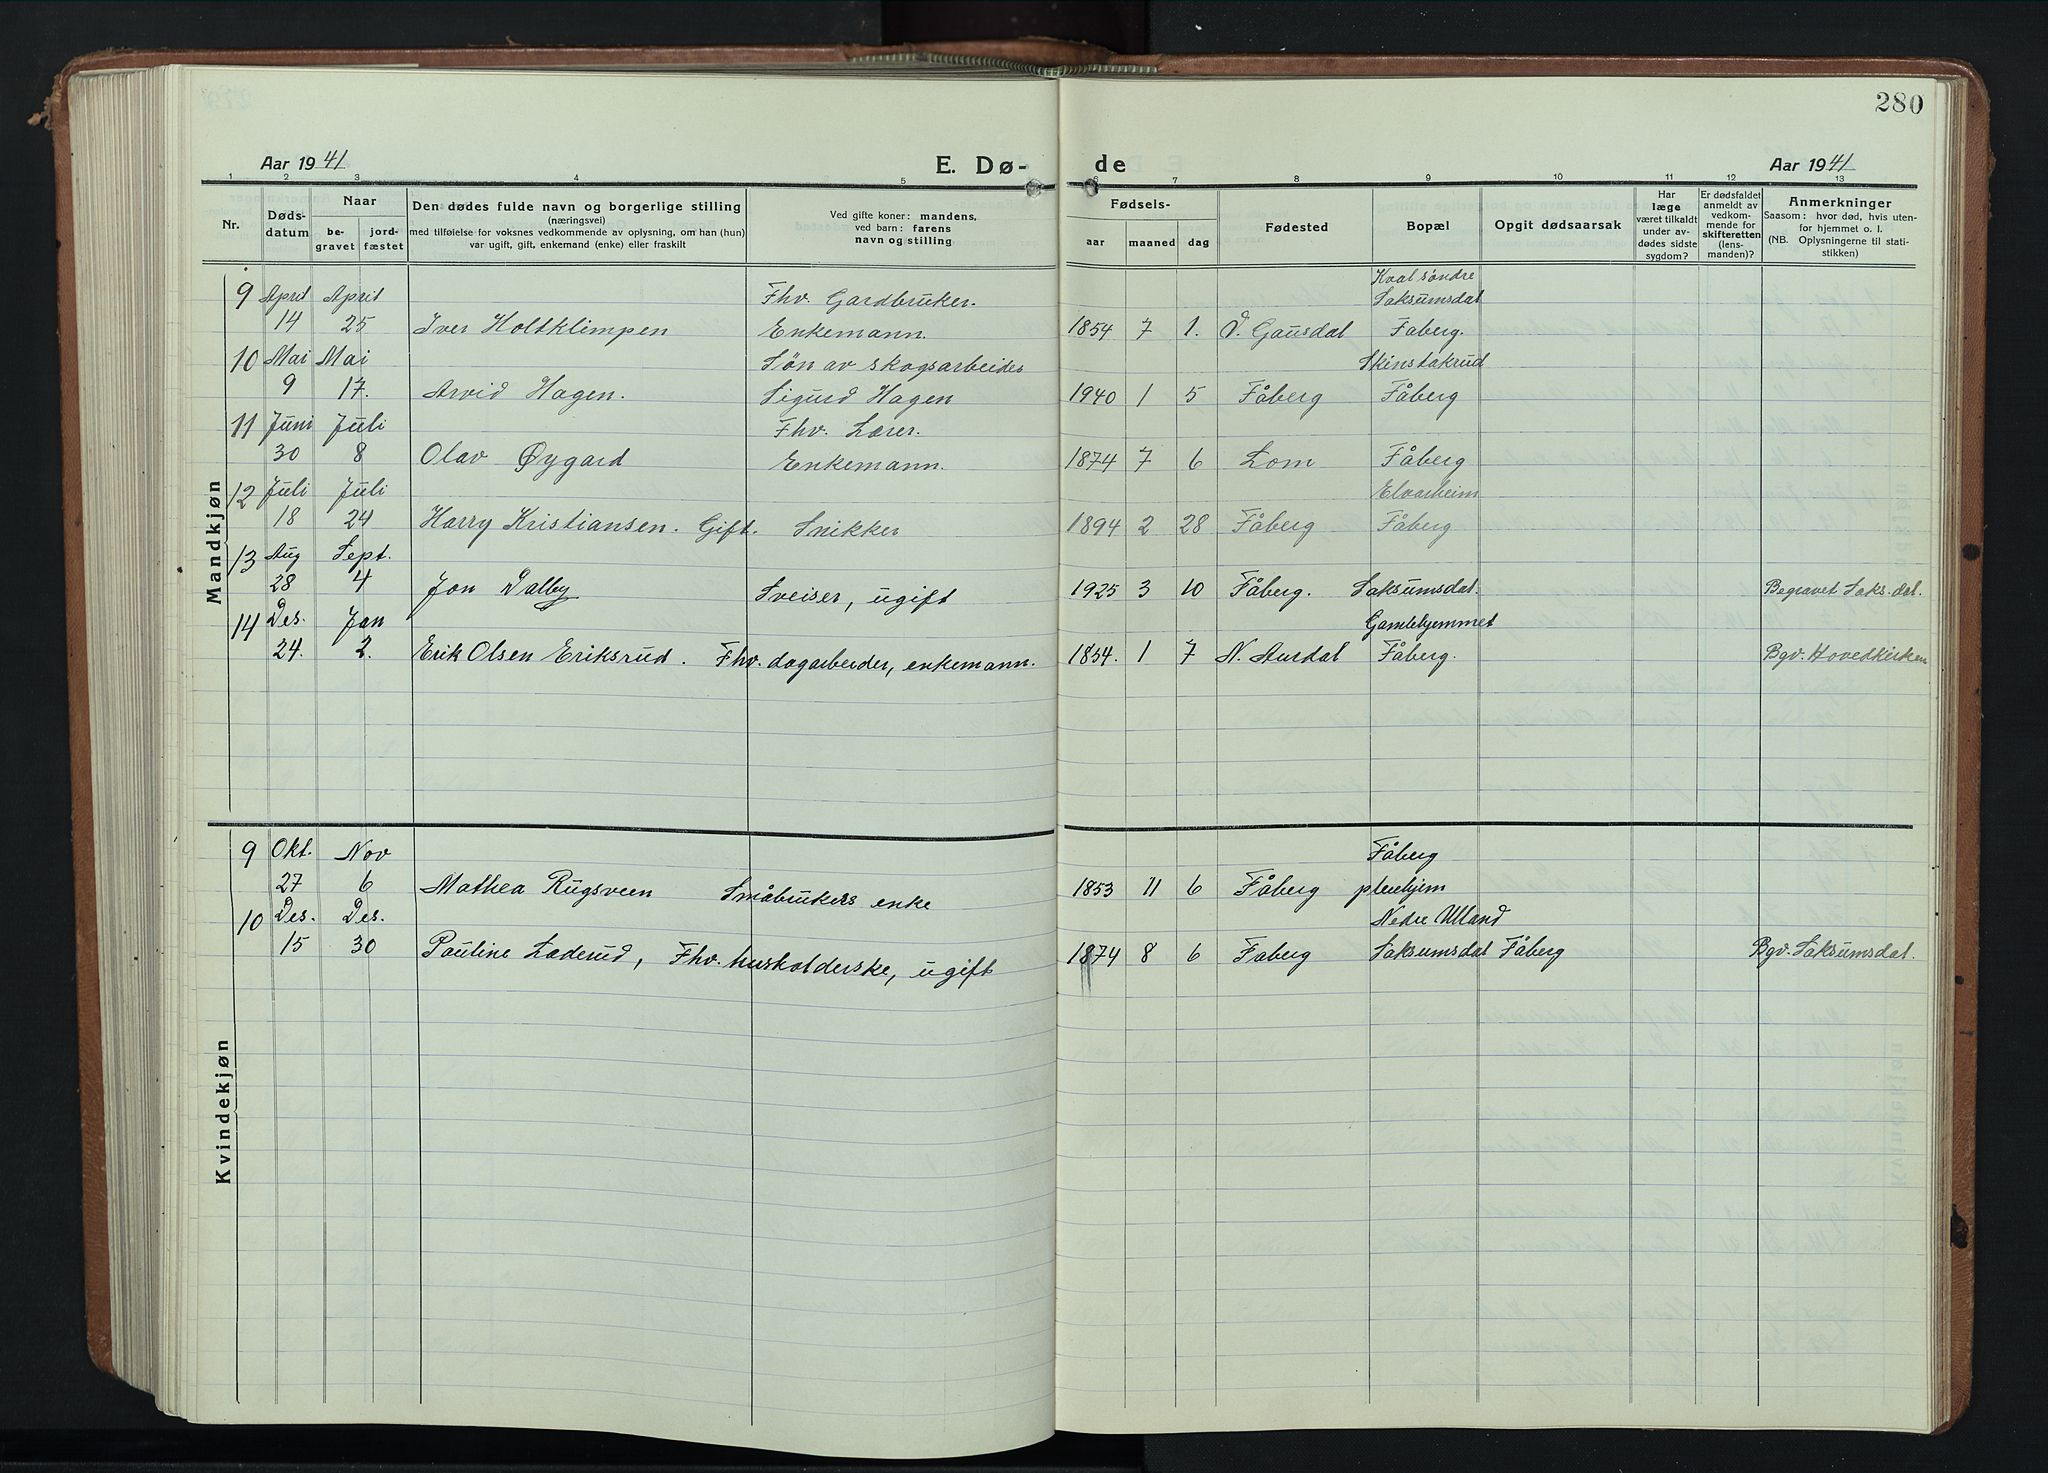 280
Aar 1941 E. Dø- de Aar 1941
1 2 3 4 5 6 7 8 9 10 11 12 13
Nr. Døds-datum Naar be-gravet jord-fæstet Den dødes fulde navn og borgerlige stilling (næringsvei) med tilføielse for voksnes vedkommende av oplysning, om han (hun) var ugift, gift, enkemand (enke) eller fraskilt Ved gifte koner: mandens, ved barn: farens navn og stilling Fødsels- aar maaned dag Fødested Bopæl Opgit dødsaarsak Har læge været tilkaldt under av-dødes sidste sygdom? Er dødsfaldet anmeldt av vedkom-mende for skifteretten (lens-manden)? Anmerkninger Saasom: hvor død, hvis uten-for hjemmet o. l. (NB. Oplysningerne til stati-stikken)
Mandkjøn
Kval søndre
9 April April Fhv. Gardbruker. Saksumsdal
14 25 Iver Holtklimpen Enkemann. 1854 7 1. Ö. Gausdal Faberg.
10 Mai Mai Søn av skogsarbeider Skinstakrud
9 17. Arvid Hagen. Sigurd Hagen 1940 1 5 Fåberg Fåberg
11 Juni Juli Fhv. Lærer.
30 8 Olav Øygard Enkemann. 1874 7 6 Lom Fåberg
12 Juli Juli Elvarheim
18 24 Harry Kristiansen. Gift. Snikker 1894 2 28 Fåberg Fåberg
13 Aug Sept.
28 4 Jon Dalby Sveiser, ugift 1925 3 10 Fåberg. Saksumsdal. Begravet Saks.dal.
14 Des. Jan Gamlehjemmet
24. 2. Erik Olsen Eriksrud. Fhv. dagarbeider, enkemann. 1854. 1 7 N. Aurdal Fåberg. Bgv. Hovedkirken
Kvindekjøn
9 Okt. Nov Fåberg
27 6 Mathea Rugsveen Småbrukers enke 1853 11 6 Fåberg pleiehjem
10 Des. Des. Nedre Ulland
15 30 Pauline Laderud, Fhv. husholderske, ugift 1874 8 6 Faberg Saksumsdal Fåberg Bgv. Saksumsdal.